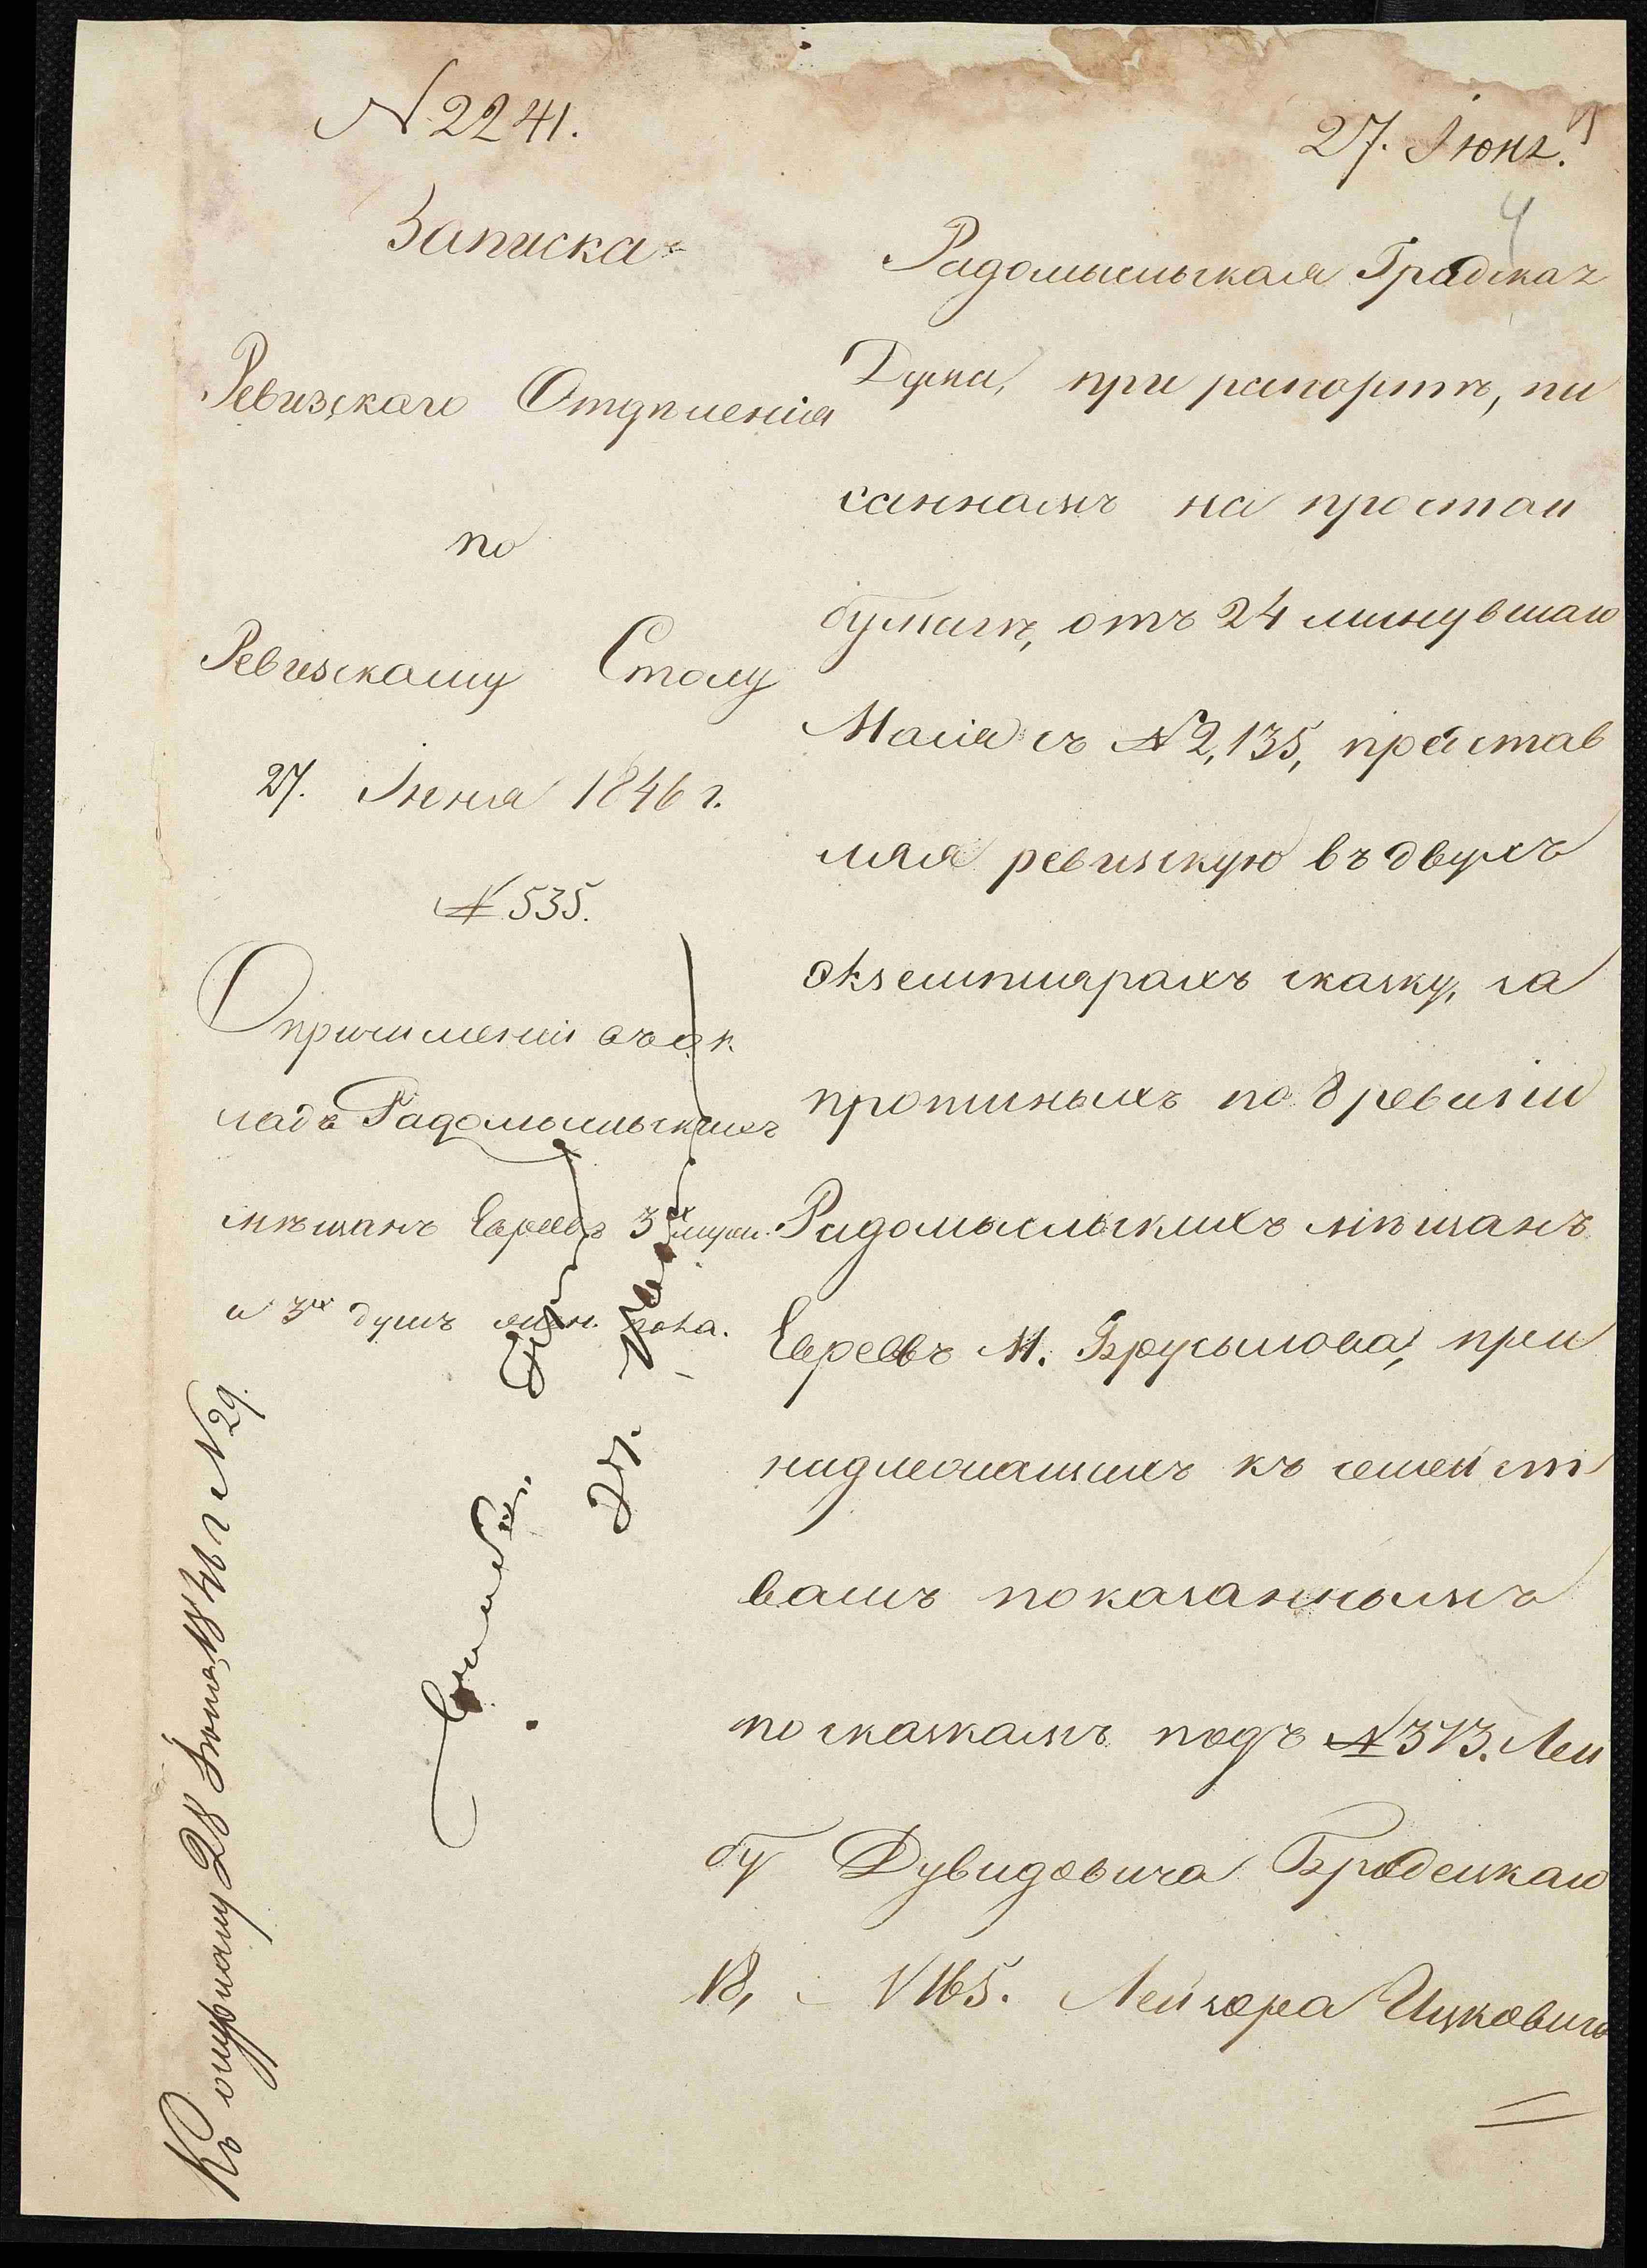 N 2241.
27. Июня.
4
Записка
Ревизскаго Отдѣленія
по
Ревизскому Столу
27. Июня 1846 г.
№ 535.
О причисленіи въ ок
ладъ Радомысльскихъ
мѣщанъ Евреевъ 3х муж.
и 3х душъ жен. пола.
27.
Къ опуфному 28 Июня 1846 г N 29.
Радомысльская Градская
Дума, при рапортѣ, пи
санномъ на простой
бумагѣ, отъ 24 минувшаго
Маія съ № 2,135, представ
ляя ревизскую въ двухъ
экземплярахъ сказку, за
пропиныхъ по 8 ревизіи
Радомысльскихъ мѣщанъ
Евреевъ М. Брусилова, при
надлежащихъ къ семейст
вамъ показаннымъ
по сказкамъ подъ № 313. Лей
бу Дувидовича Бродецкаго
18, N 165. Лейзора Ицковича